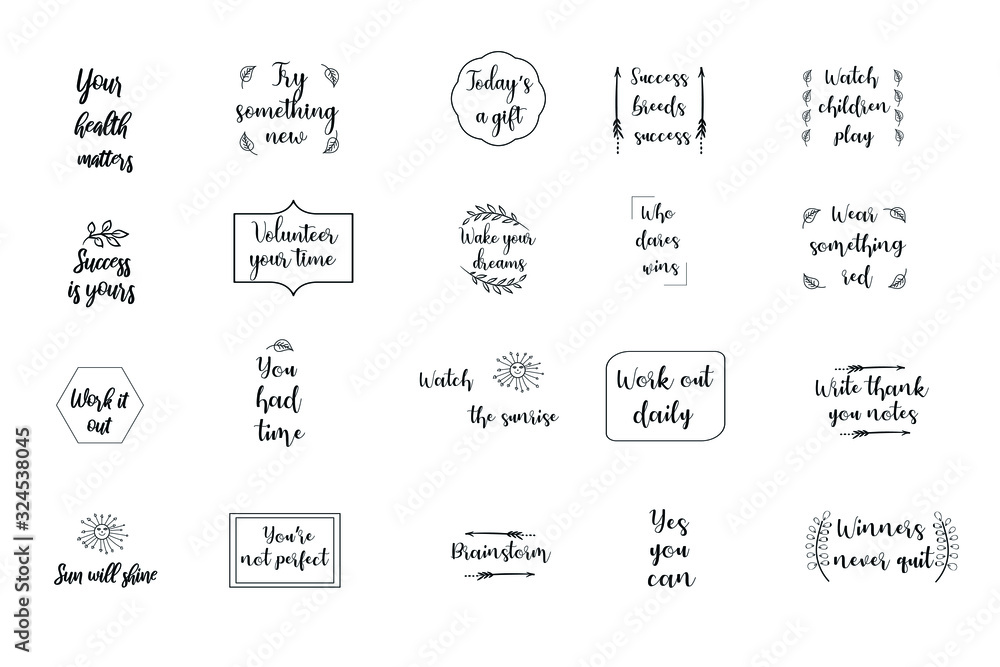 Your
health
matters
Try
something
new
Today's
a gift
Success
breeds
success
Watch
children
play
Success
is yours
Volunteer
your time
Wake your
dreams
Who
dares
wins
Wear
something
red
Work it
out
You
had
time
Watch
the sunrise
Work out
daily
Write thank
you notes
Sun will shine
You're
not perfect
Brainstorm
Yes
you
can
Winners
never quit
Adobe Stock | #324538045